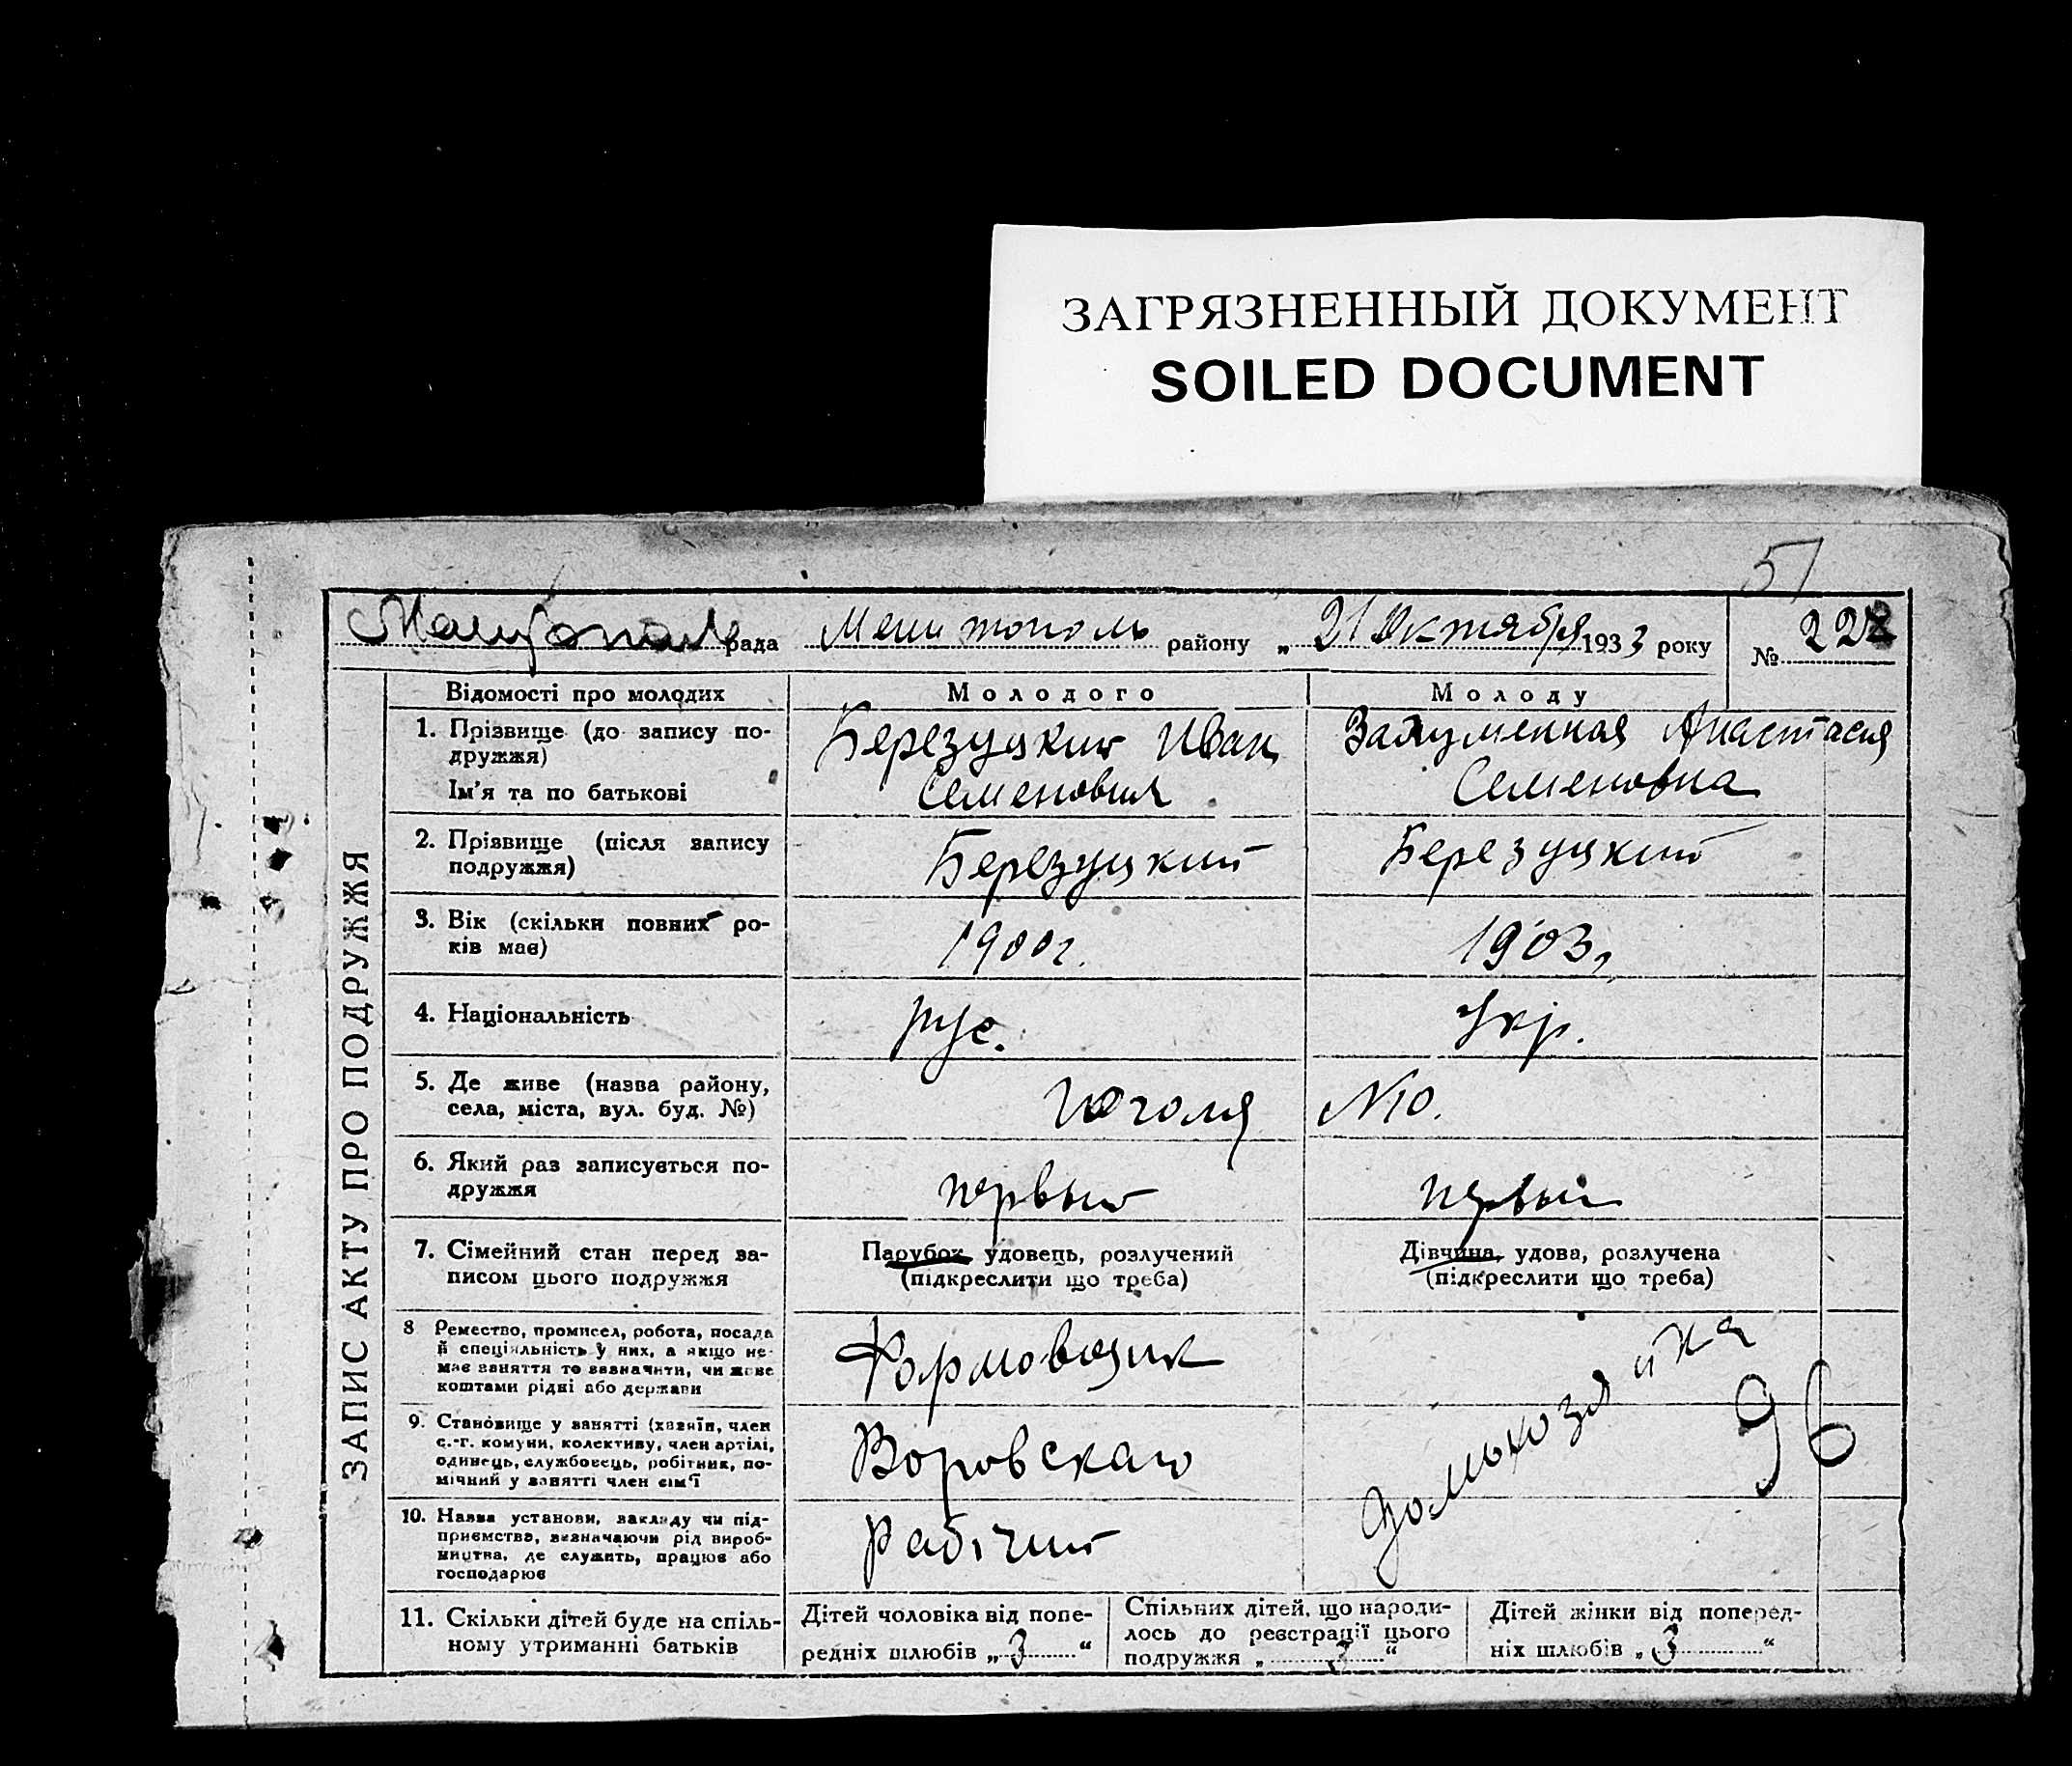 ЗАГРЯЗНЕННЫЙ ДОКУМЕНТ
SOILED DOCUMENT
51
рада Мелитополь району „ 21 Октября 1933 року № 228
ЗАПИС АКТУ ПРО ПОДРУЖЖЯ
Відомості про молодих
Молодого
Молоду
1. Прізвище (до запису по-
дружжя)
Ім'я та по батькові
Березуцкий Иван
Семенович
Анастасия
Семеновна
2. Прізвище (після запису
подружжя)
Березуцкий
Березуцкий
3. Вік (скільки повних ро-
ків має)
1900г.
1903г
4. Національність
рус.
Укр.
5. Де живе (назва району,
села, міста, вул. буд. №)
Гоголя
№10.
6. Який раз записується по-
дружжя
первый
первый
7. Сімейний стан перед за-
писом цього подружжя
Парубок, удовець, розлучений
(підкреслити що треба)
Дівчина, удова, розлучена
(підкреслити що треба)
8 Ремество, промисел, робота, посада
й спеціяльність у них, а якщо не-
має заняття то зазначити, чи живе
коштами рідні або держави
Формовщик
домохозяйка
96
9. Становище у занятті (хазяїн, член
с.-г. комуни, колективу, член артілі,
одинець, службовець, робітник, по-
мічний у занятті член сім'ї
Воровскаго
10. Назва установи, закладу чи під-
приємства, визначаючи рід вироб-
ництва, де служить, працює або
господарює
Рабочий
11. Скільки дітей буде на спіль-
ному утриманні батьків
Дітей чоловіка від попе-
редніх шлюбів „ 3 “
Спільних дітей, що народи-
лось до реєстрації цього
подружжя „ 3 “
Дітей жінки від поперед-
ніх шлюбів „ 3 “